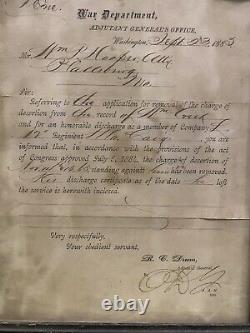 War Department,
ADJUTANT GENERAL'S OFFICE,
Washington, Sept 23 1885
Mr. Wm P. Hooper, Atty
Plattsburg
Mo.
Sir:
Referring to the application for removal of the charge of
desertion from the record of Wm
and for an honorable discharge as a member of company F
12" Regiment Mo. Cavy, you are
informed that, in accordance with the provisions of the act
of Congress approved July 5, 1884, the charge of desertion of
standing against him has been removed.
His discharge certificate as of the date he left
the service is herewith inclosed.
Very respectfully,
Your obedient servant,
R. C. Drum,
Adjutant General.